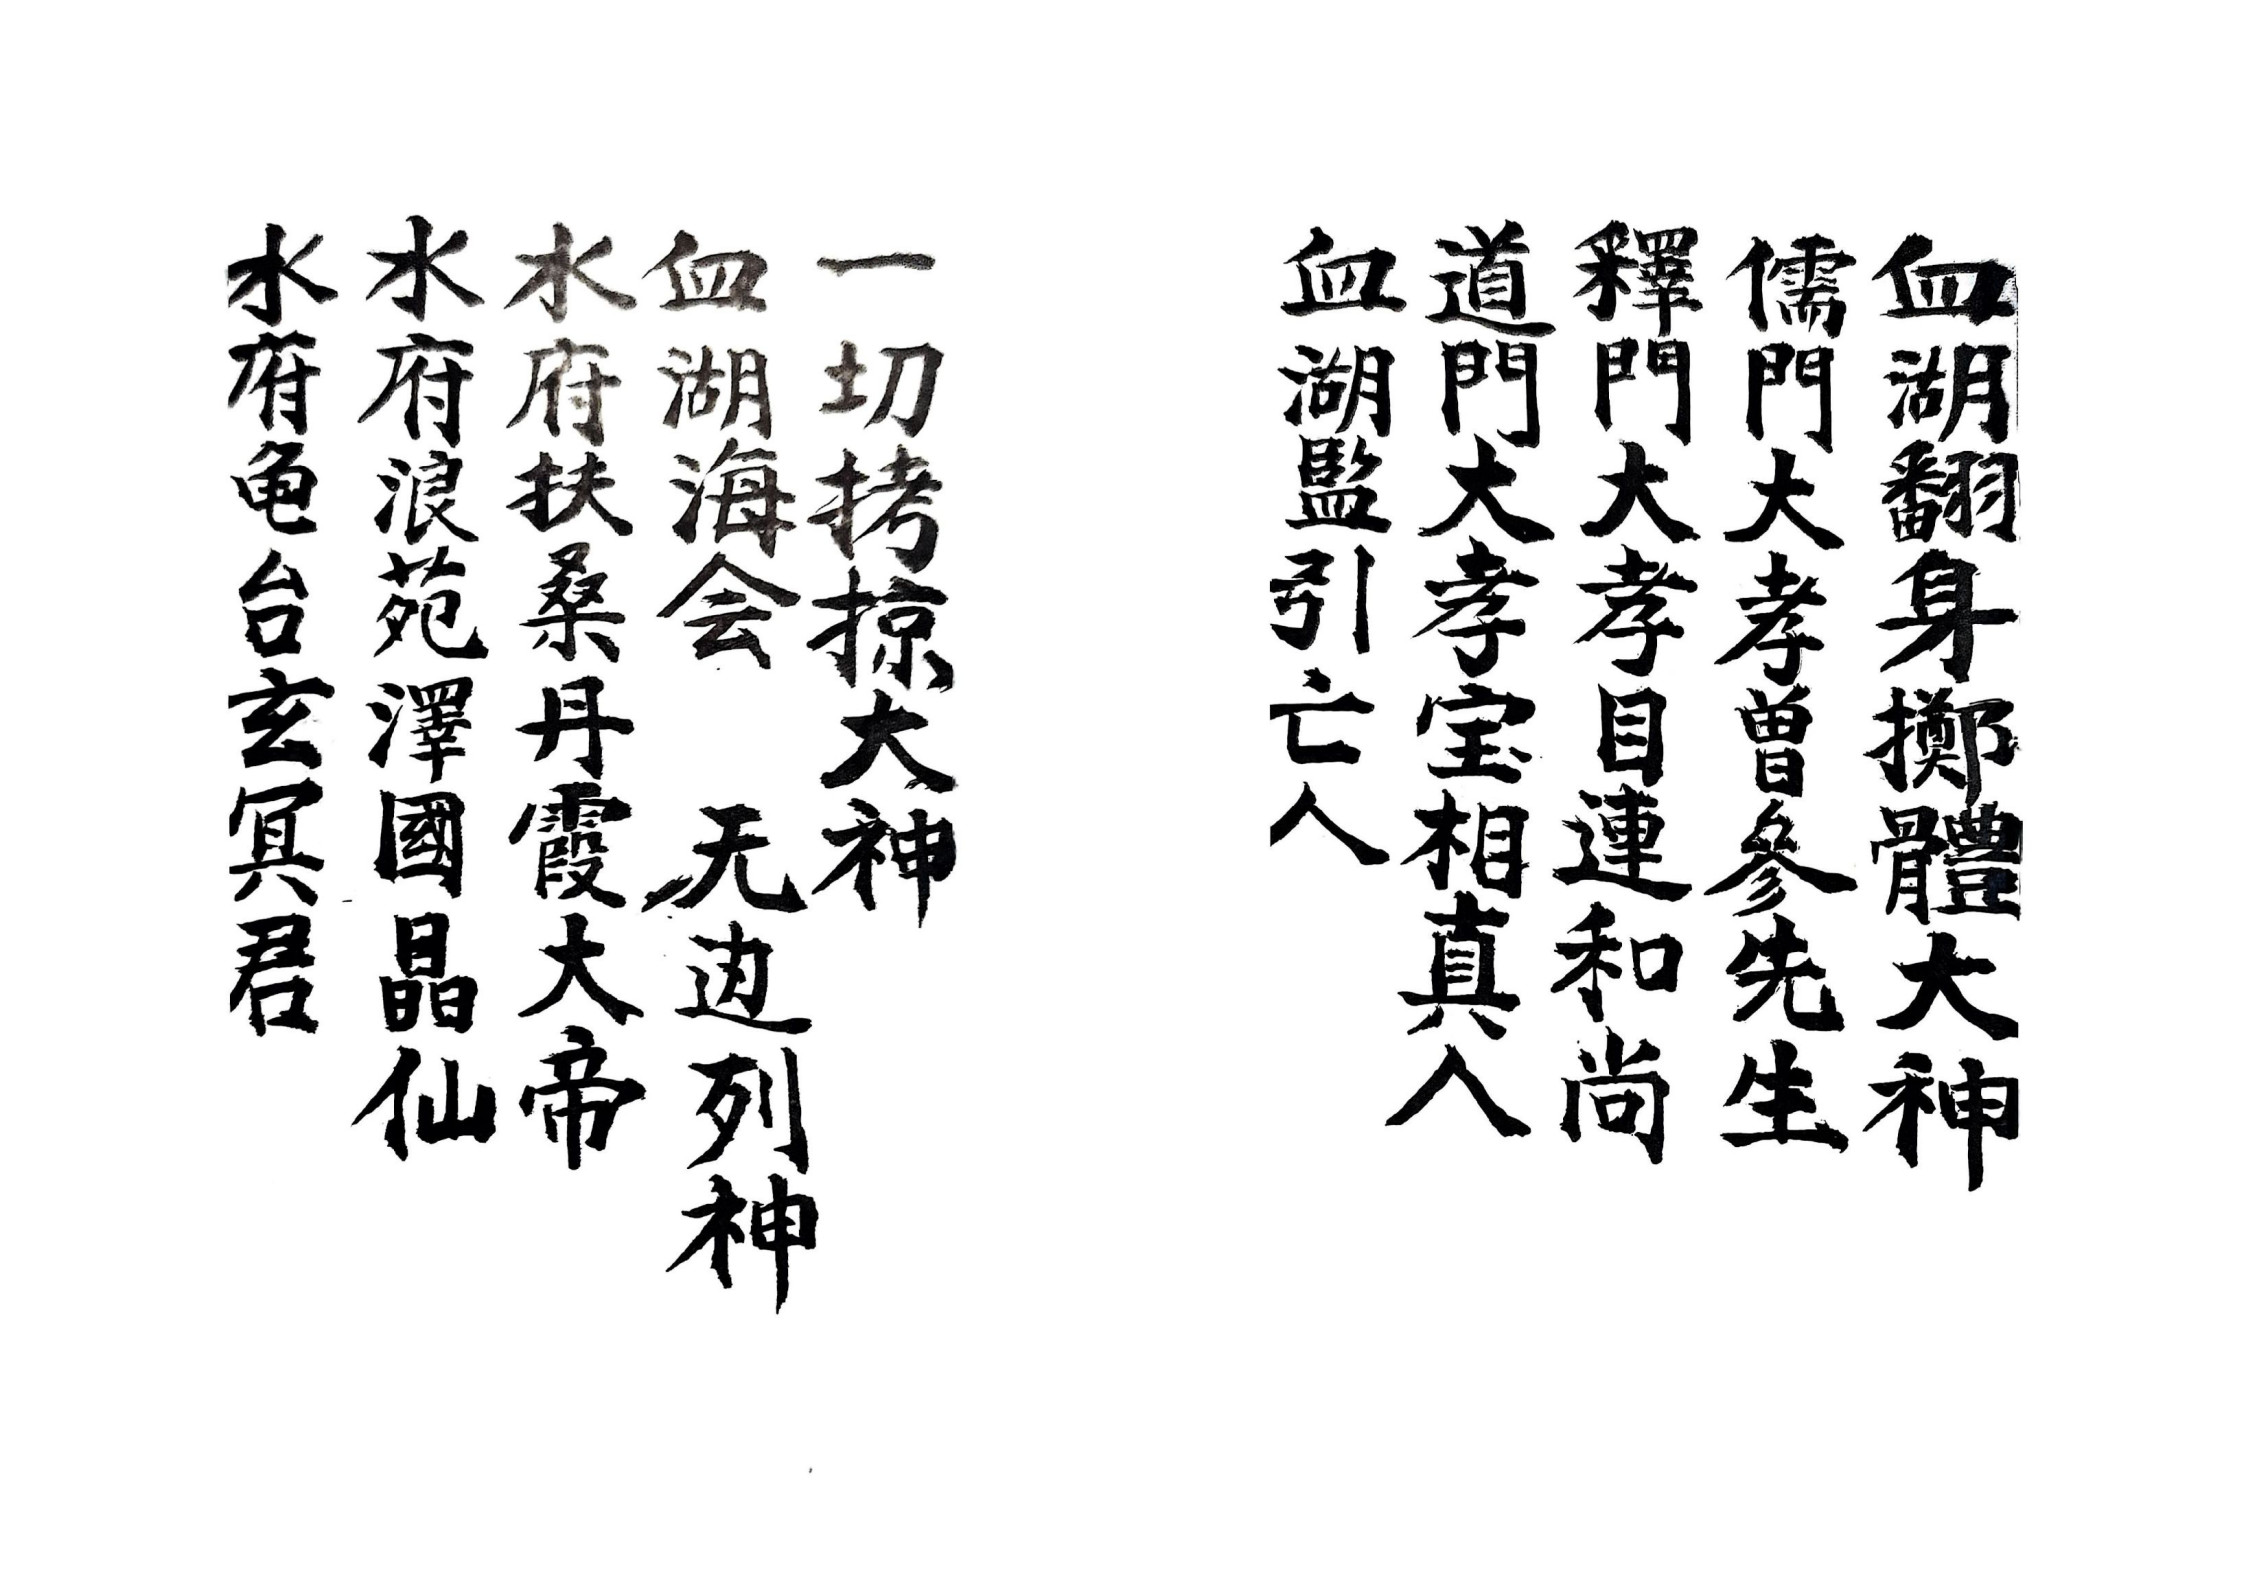 血湖翻身擲體大神
儒門大孝曾參先生
釋門大孝目連和尚
道門大孝宝相真人
血湖監引亡人
一切拷掠大神
血湖海会 无边列神
水府扶桑丹霞大帝
水府浪苑澤國晶仙
水府龟台玄冥君